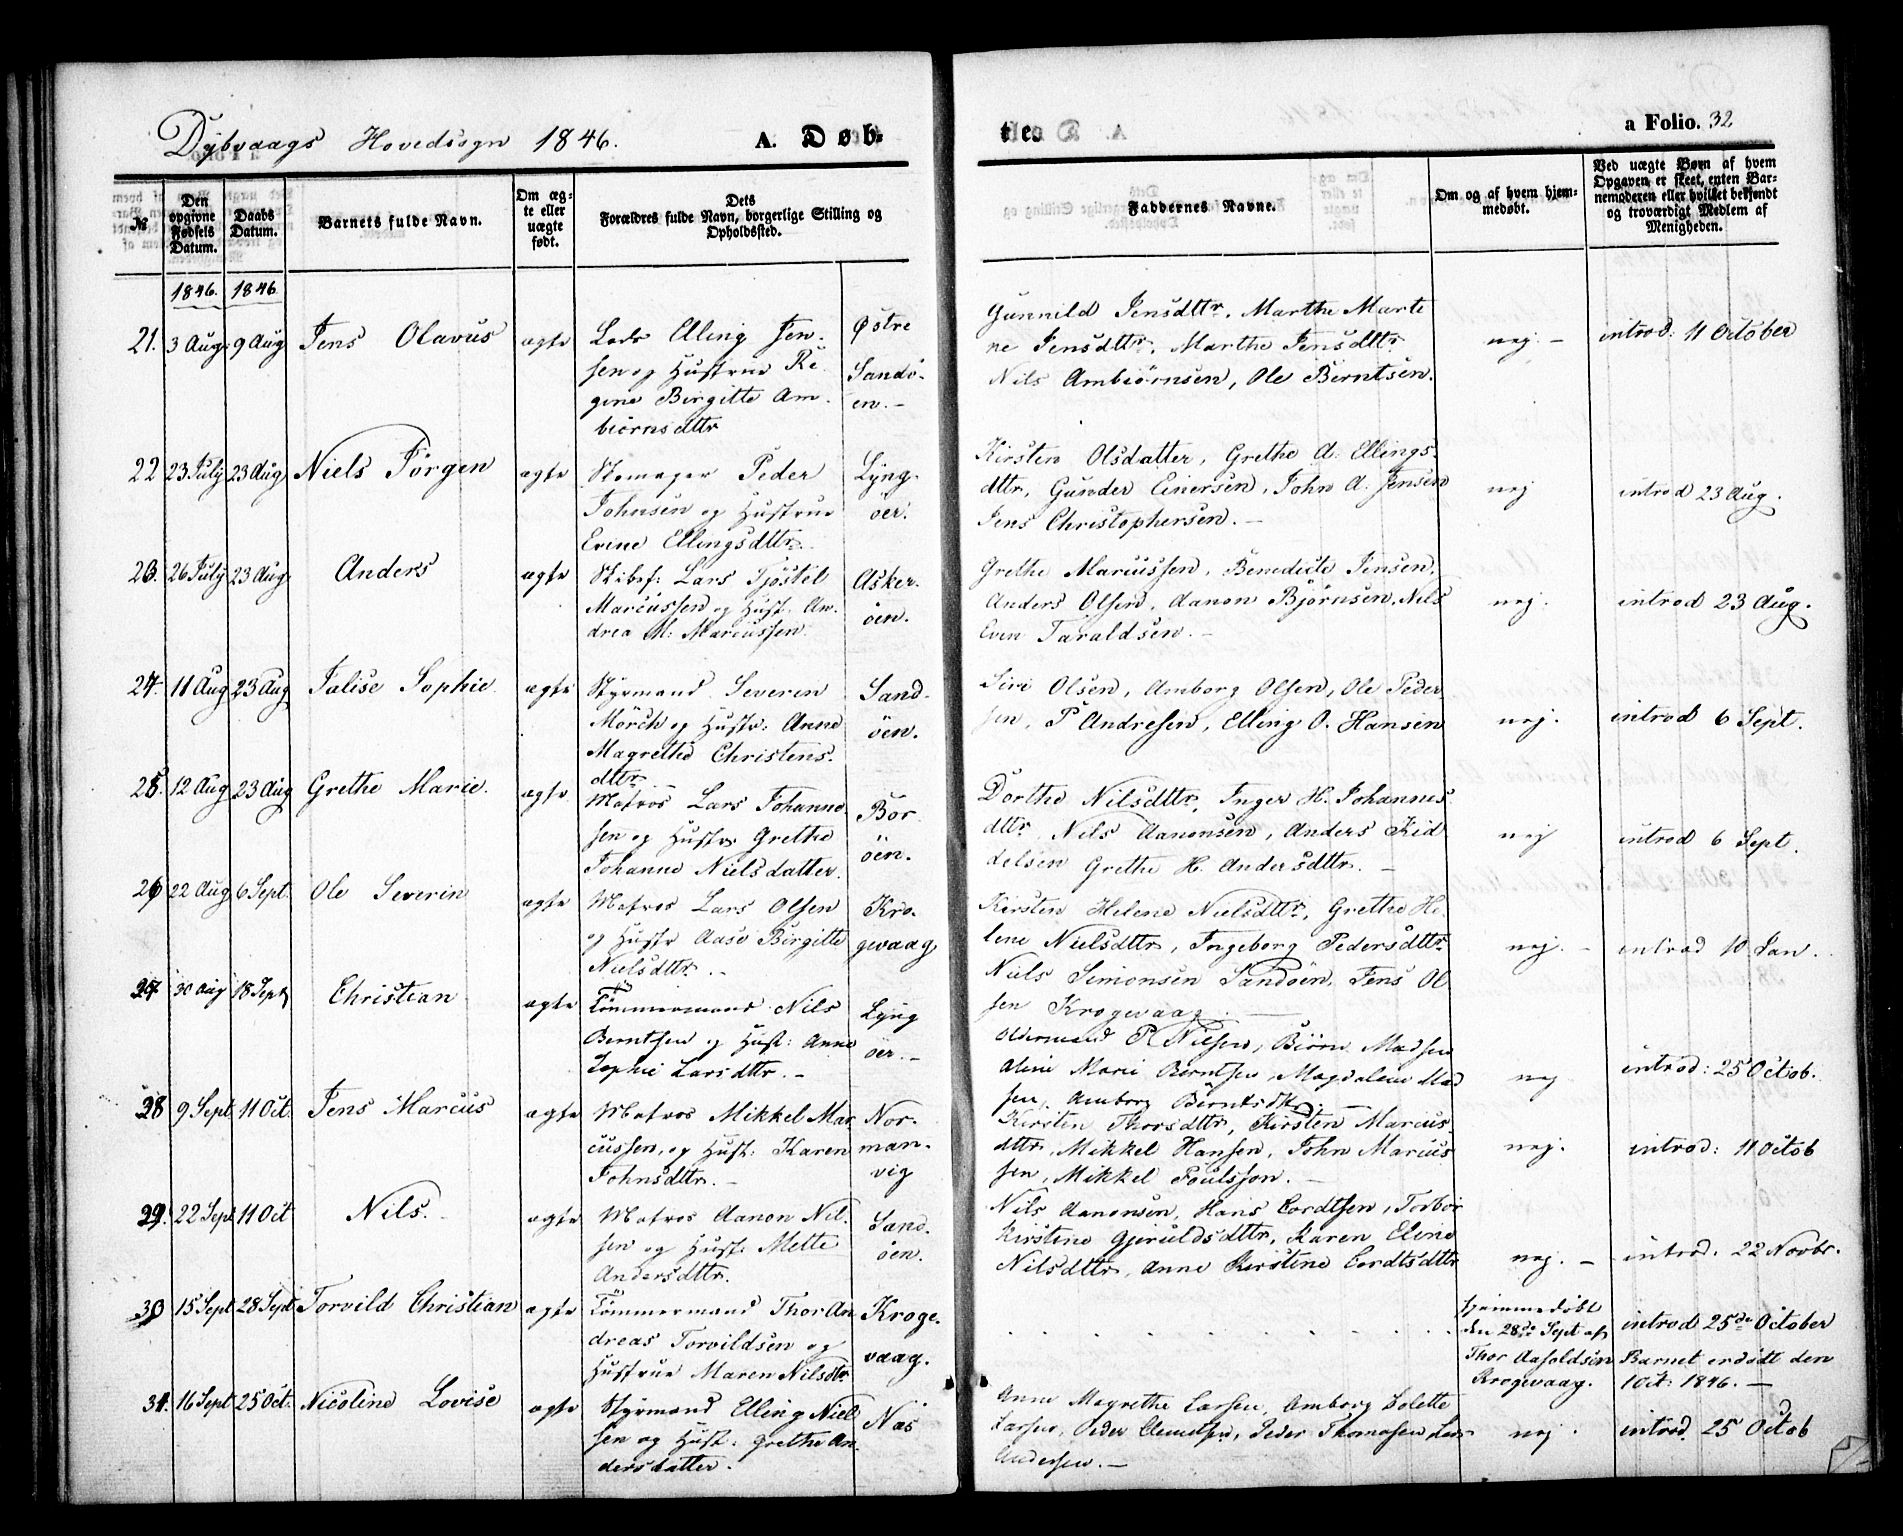 Dybvaags Hovedsogn 1846.
A. Døb-
te.
a Folio. 32
№
Den opgivne Fødsels Datum.
Daabs Datum.
Barnets fulde Navn.
Om ægte eller uægte født.
Dets Forældres fulde Navn, borgerlige Stilling og Opholdssted.
Faddernes Navne.
Om og af hvem hjemmedøbt.
Ved uægte Børn af hvem Opgaven er skeet, enten Barnemoderen eller hvilket bekjendt og troværdigt Medlem af Menigheden.
1846. 1846
21. 3 Aug. 9 Aug Jens Olavus ægte
Lods Elling Jen-
sen og Hustrue Re-
gine Birgitte Am-
biørnsdttr
Østre
Sandö-
en.-
Gunnild Jensdttr, Marthe Marte
ne Jensdttr, Marthe Jensdttr
Nils Ambiörnsen, Ole Berntsen.
nej. -
introd: 11 October
22 23 July 23 Aug Niels Jörgen ægte
Skomager Peder
Johnsen og Hustrue
Evine Ellingsdttr.
Lyng-
öer.
Kirsten Olsdatter, Grethe A. Ellings-
dttr, Gunder Einersen, John A. Jensen
Jens Christophersen. -
nej
introd 23 Aug.
23. 26 July 23 Aug Anders ægte
Skibsf: Lars Tjöstel
Marcussen og Hust. An-
drea M: Marcussen.
Asker-
öen.
Grethe Marcussen, Benedicte Jensen,
Anders Olsen, Aanon Björnsen, Nils
Even Taraldsen. -
nej.
introd 23 Aug.
24. 11 Aug 23 Aug Talise Sophie ægte
Styrmand Severin
Mörch og Hustr: Anne
Magrethe Christens-
dttr
Sand-
öen.
Siri Olsen, Amborg Olsen, Ole Peder
sen, P Andresen, Elling O. Hansen
nej.
introd 6 Sept.
25. 12 Aug 23 Aug Grethe Marie. ægte
Matros Lars Johanne
sen og Hustr. Grethe
Johanne Nielsdatter.
Bor-
öen.
Dorthe Nilsdttr, Inger H. Johannes
dttr Nils Aanonsen, Anders Kid
delsen Grethe H. Andersdttr. -
nej
introd 6 Sept.
26 22 Aug 6 Sept. Ole Severin ægte
Matros Lars Olsen
og Hustr Aase Birgitte
Nielsdttr. -
Kro-
gevaag
Kirsten Helene Nielsdttr, Grethe He-
lene Nielsdttr, Ingeborg Pedersdttr
Niels Simonsen Sandöen, Jens Ol
sen Krogevaag. -
nej. -
introd 10 Jan.
27 30 Aug 18 Sept Christian ægte
Tömmermand Nils
Berntsen og Hust: Anne
Sophie Larsdttr. -
Lyng
öer. -
Oldermand P. Nilsen, Biörn Madsen
Aline Marie Berntsen, Magdalene Mad
sen, Amborg Berntsdtr. -
nej
introd: 25 Octob.
28 9 Sept 11 Oct. Jens Marcus ægte
Matros Mikkel Mar-
cussen, og Hust: Karen
Johnsdttr. -
Nor-
man-
vig
Kirsten Thorsdttr, Kirsten Marcus-
dttr, Mikkel Hansen, John Marcus-
sen, Mikkel Poulsson. -
nej.
introd: 11 Octob
29. 22 Sept 11 Oct Nils. ægte
Matros Aanon Nil-
sen og Hust: Mette
Andersdttr.
Sand-
öen.
Nils Aanonsen, Hans Cordtsen, Torbor
Kirstine Gjeruldsdttr, Karen Eline
Nilsdttr, Anne Kirstine Cordtsdttr
nej. -
introd: 22 Novbr.
30 15 Sept 28 Sept Torvild Christian ægte
Tömmermand Thor An
dreas Torvildsen og
Hustrue Maren Nilsdtr
Kroge-
vaag.
. . . . . . . . . . . .
hjemmedøbt
den 28de Sept af
Thor Aasoldsen
Krogevaag.
introd 25de October
Barnet er dödt den
1 Oct: 1846. -
31. 16 Sept 25 Oct. Nicoline Lovise ægte
Styrmand Elling Niel
sen og Hust: Grethe An
dersdatter.
Næs
Anne Magrethe Larsen, Amborg Colette
Larsen, Peder Clemetsen, Peder Thomasen, Lars
Andersen. -
nej.
introd. 25 Octob